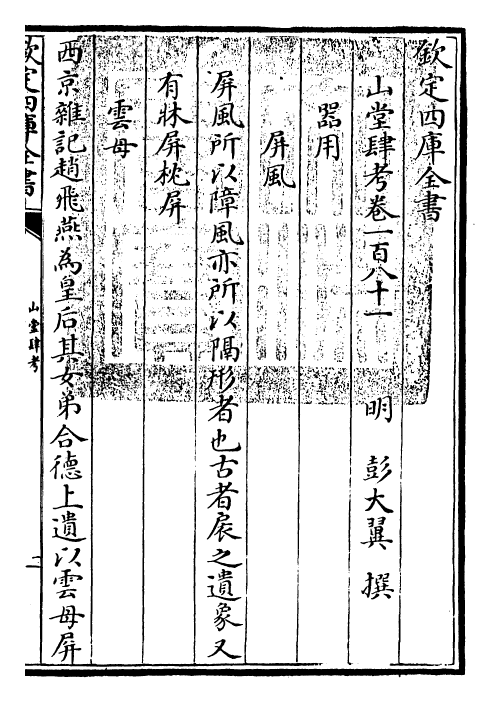 欽定四庫全書
山堂肆考卷一百八十一 明 彭大翼 撰
器用
屏風
屏風所以障風亦所以隔形者也古者扆之遺象又
有牀屏枕屏
雲母
西京雜記趙飛燕為皇后其女弟合德上遺以雲母屏
欽定四庫全書
山堂肆考